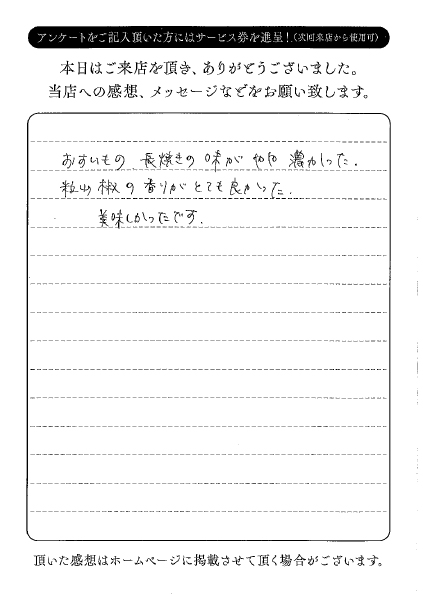 アンケートをご記入頂いた方にはサービス券を進呈！(次回来店から使用可)
本日はご来店を頂き、ありがとうございました。
当店への感想、メッセージなどをお願い致します。
おすいもの、長焼きの味がやや濃かった。
粒山椒の香りがとても良かった。
美味しかったです。
頂いた感想はホームページに掲載させて頂く場合がございます。